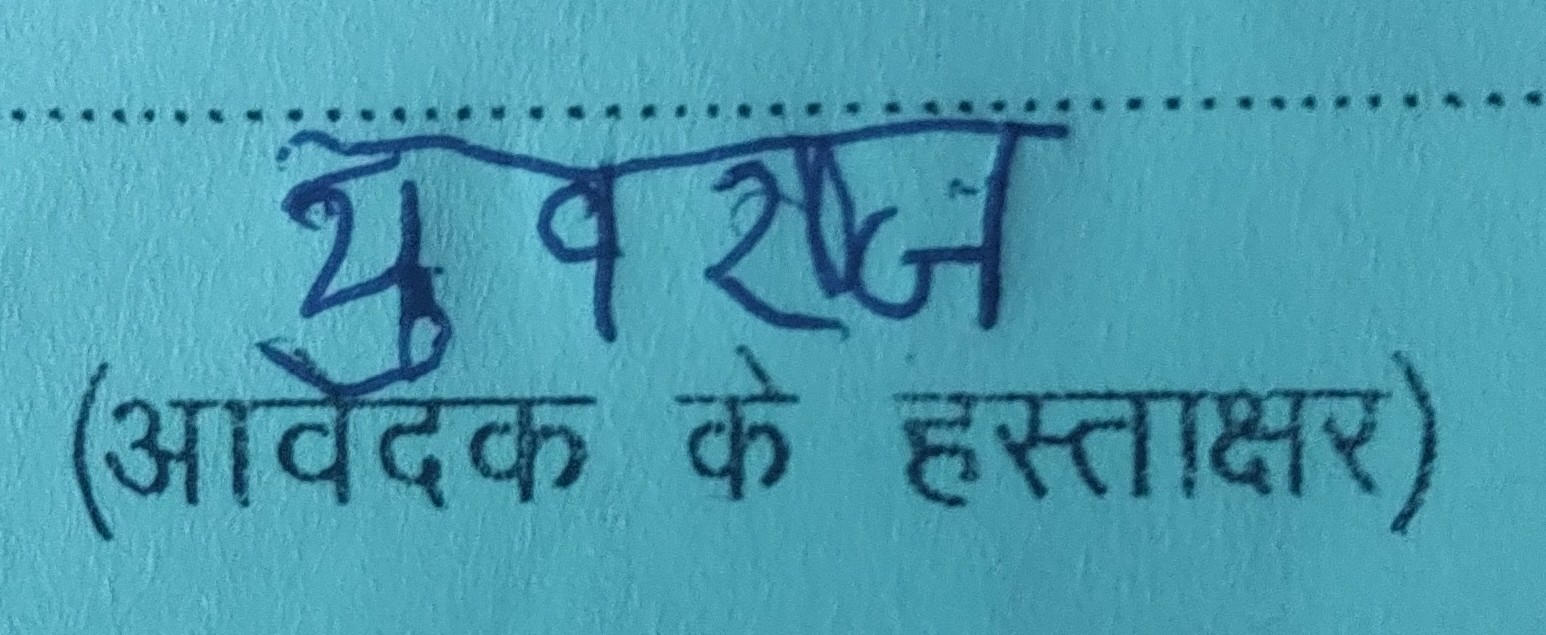 युवराज
(आवेदक के हस्ताक्षर)